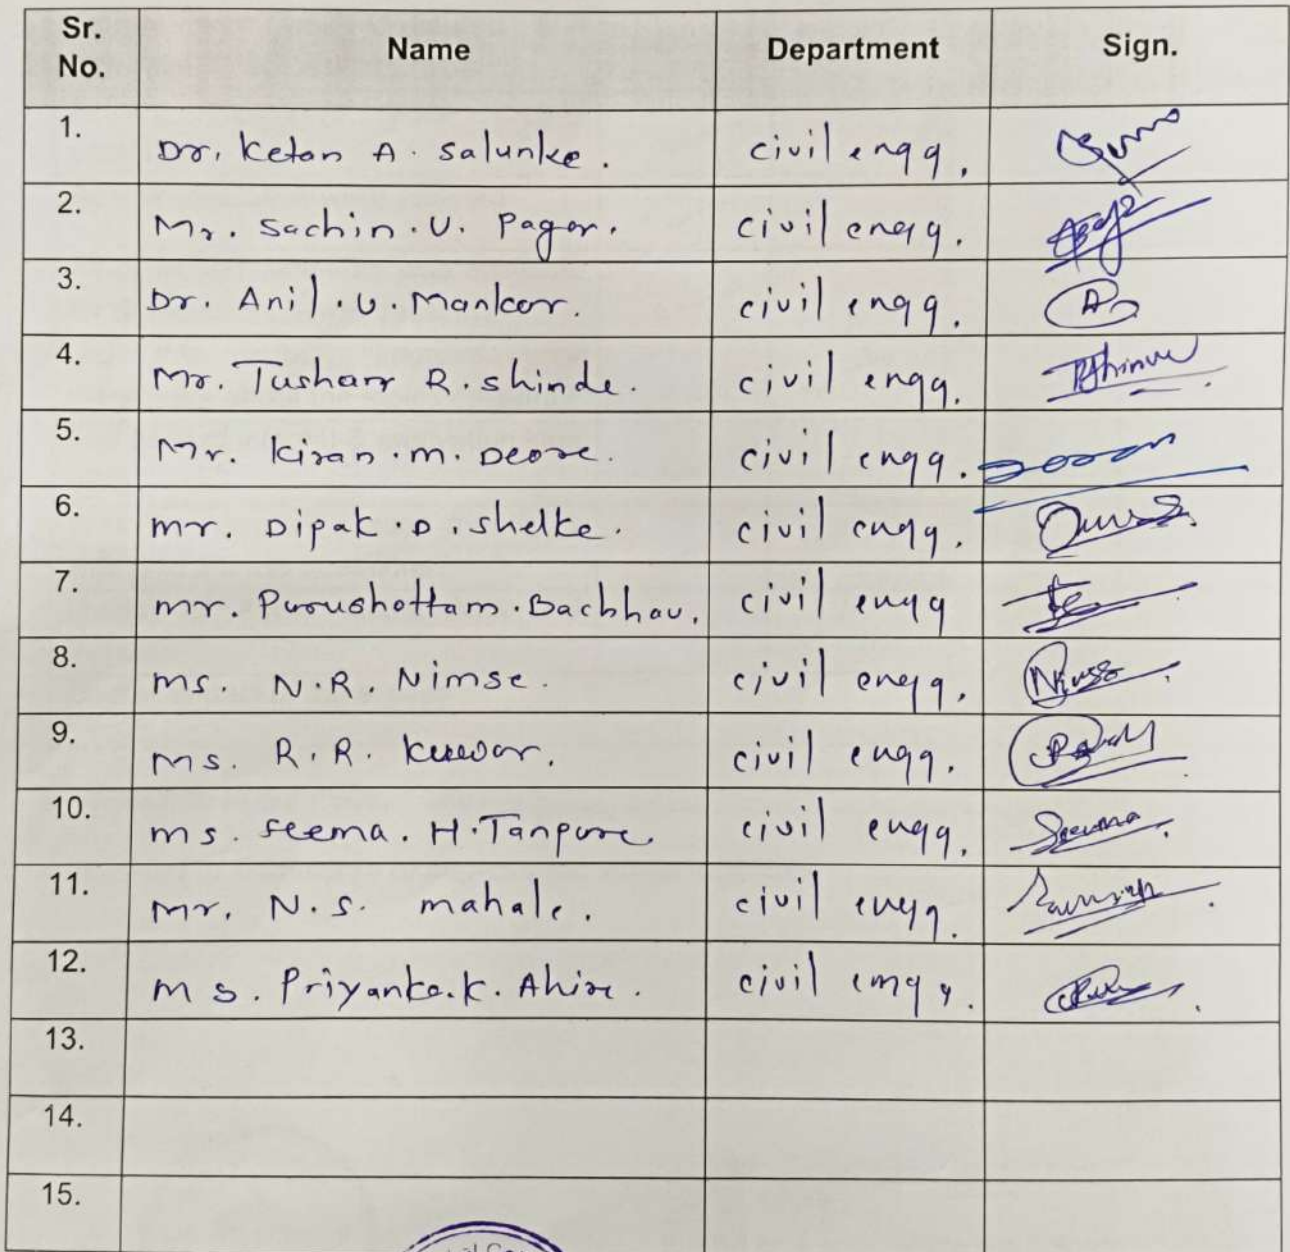 Sr. No. Name Department Sign.
1. Dr. Ketan A. Salunke. civil engg.
2. Mr. Sachin.U. Pagar. civil engg.
3. Dr. Anil.U.Mankar. civil engg.
4. Mr. Tushar R. shinde. civil engg.
5. Mr. kiran.m. Deore. civil engg.
6. mr. Dipak.D.shelke. civil engg.
7. mr. Purushottam.Bachhav. civil engg
8. ms. N.R. Nimse. civil engg. Nimse
9. ms. R.R. kuwar. civil engg.
10. ms. seema. H.Tanpure civil engg. Seema
11. mr. N.S. mahale. civil engg.
12. ms. Priyanka.k. Ahire. civil engg.
13.
14.
15.